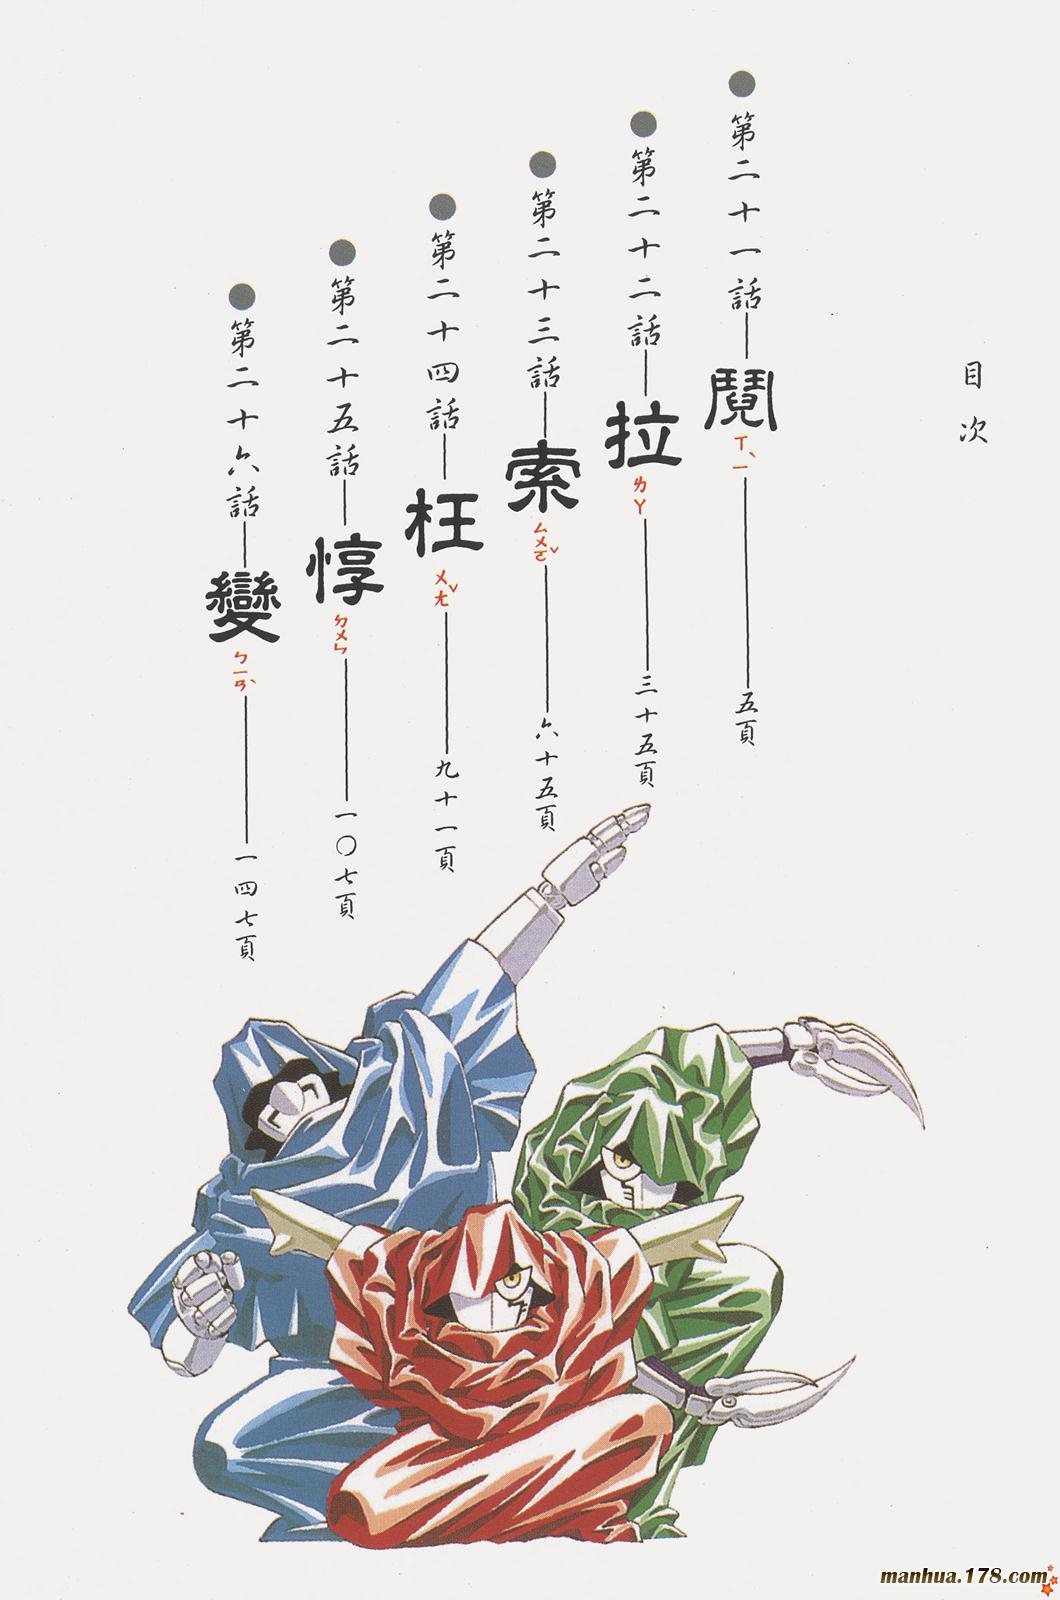 目次
●第二十一話——鬩ㄒㄧˋ——五頁
●第二十二話——拉ㄌㄚ——三十五頁
●第二十三話——索ㄙㄨㄛˇ——六十五頁
●第二十四話——枉ㄨㄤˇ——九十一頁
●第二十五話——惇ㄉㄨㄣ——一〇七頁
●第二十六話——變ㄅㄧㄢˋ——一四七頁
manhua.178.com